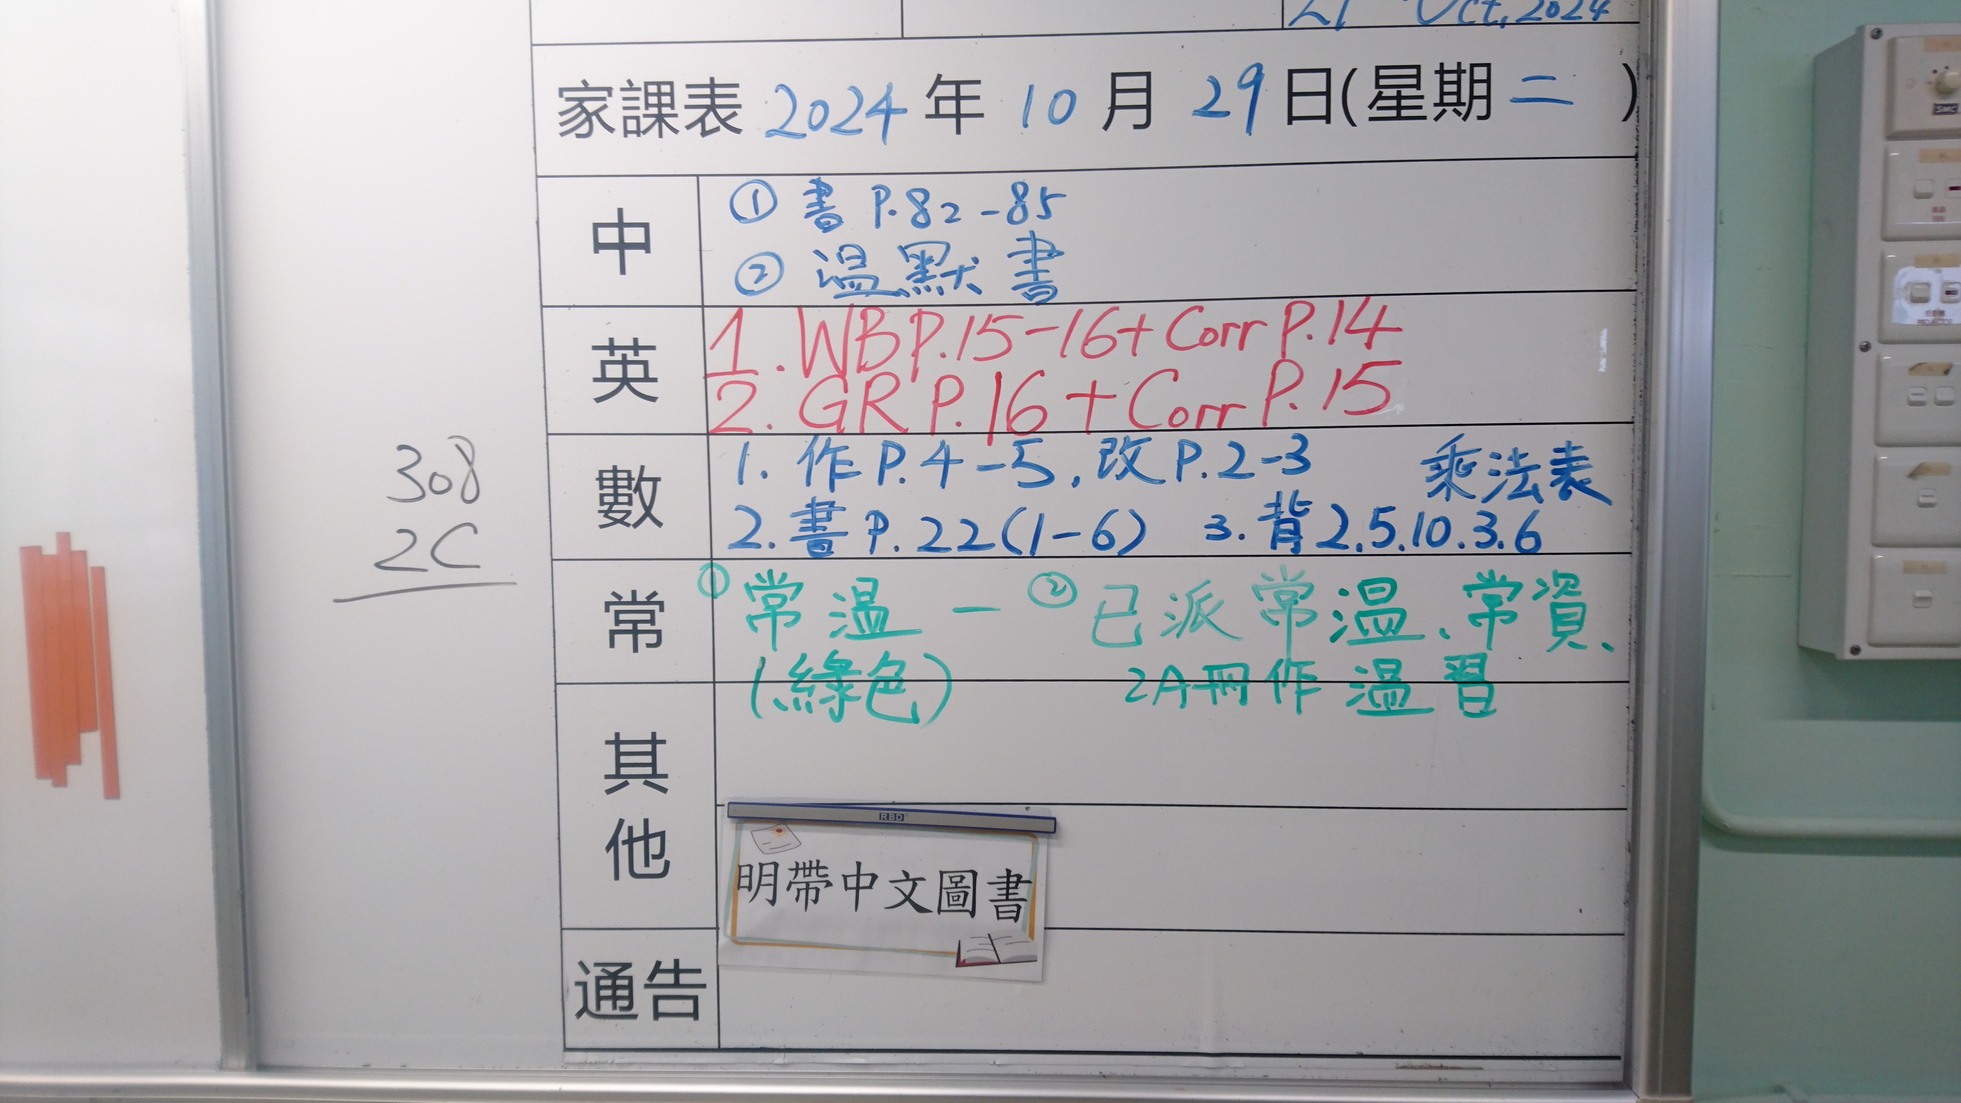 Oct, 2024
家課表 2024 年 10 月 29 日(星期 二 )
中
① 書 P.82-85
② 溫默書
英
1. WB P.15-16 + Corr P.14
2. GR P.16 + Corr P.15
數
1. 作 P.4-5, 改 P.2-3 乘法表
2. 書 P.22(1-6) 3. 背 2.5.10.3.6
常
① 常溫一 ② 已派常溫、常資、
(綠色) 2A冊作溫習
其他
RBD
明帶中文圖書
通告
308
2C